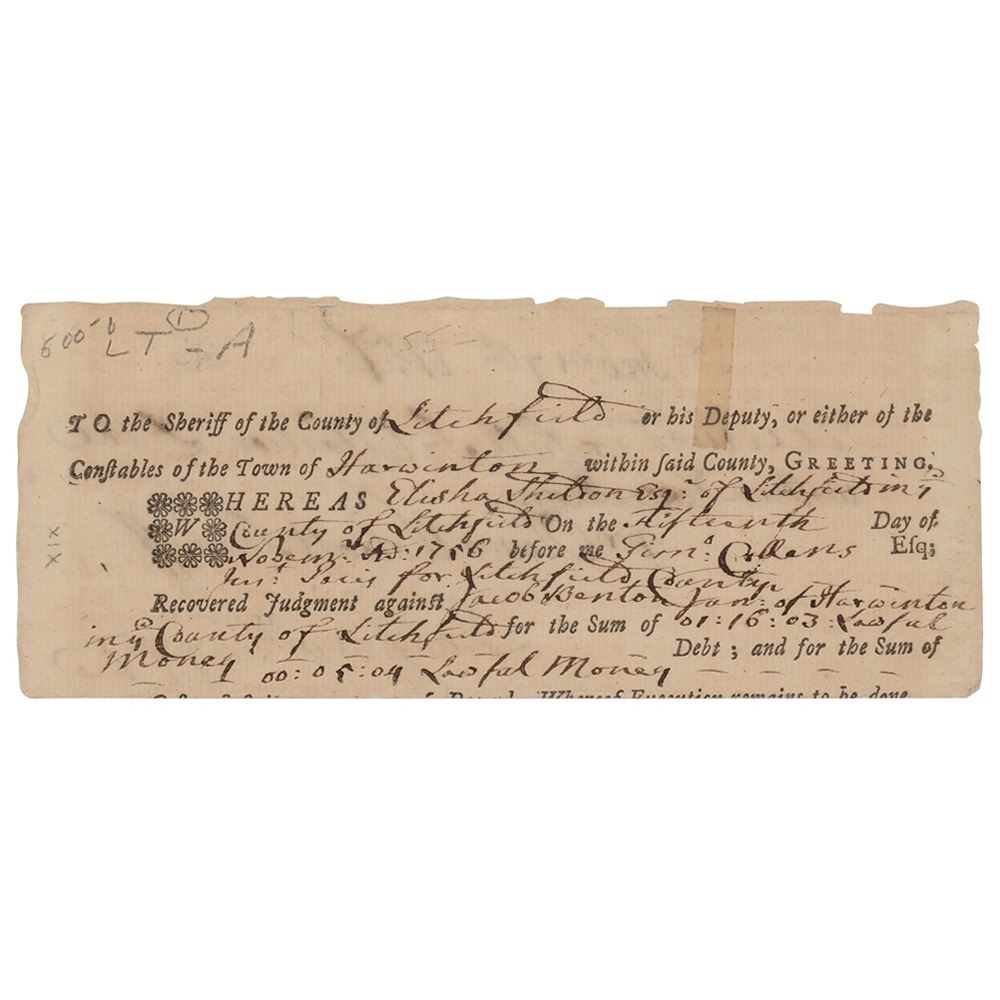 500
LT - A
1
55 -
TO the Sheriff of the County of Litchfield or his Deputy, or either of the
Conſtables of the Town of Harwinton within ſaid County, GREETING.
WHEREAS Elisha Sheldon Esqr. of Litchfield in ye
County of Litchfield On the Fifteenth Day of
Novemr. AD: 1756 before me Timo. Collens Eſq;
Jus: Pacis for Litchfield County
Recovered Judgment against Jacob Benton Junr: of Harwinton
in ye County of Litchfield for the Sum of 01:16:03: Lawful
Money Debt; and for the Sum of
00:05:04 Lawful Money
Whereof Execution remains to be done
XIX